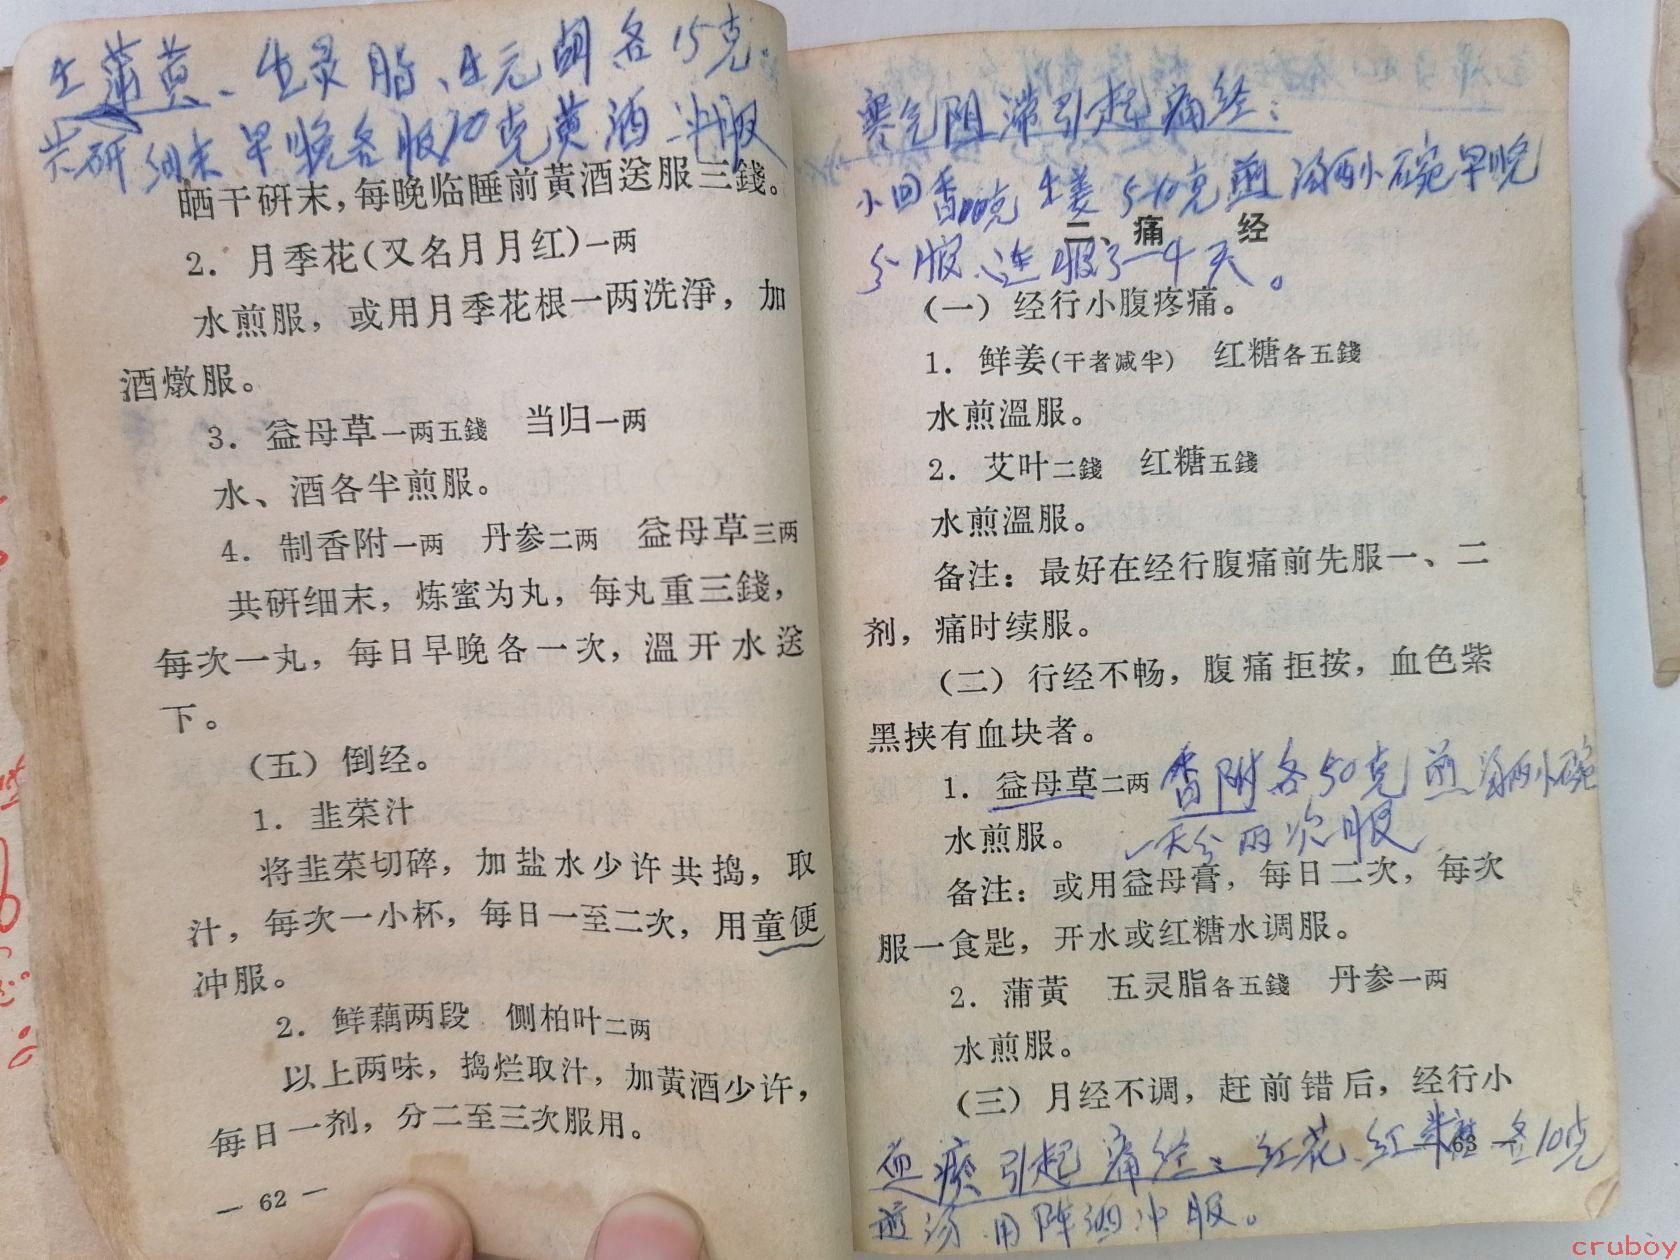 生蒲黄、生灵脂、生元胡各15克
共研细末早晚各服10克黄酒冲服
晒干研末，每晚临睡前黄酒送服三錢。
2．月季花（又名月月红）一两
水煎服，或用月季花根一两洗淨，加
酒燉服。
3．益母草一两五錢　当归一两
水、酒各半煎服。
4．制香附一两　丹参二两　益母草三两
共研细末，炼蜜为丸，每丸重三錢，
每次一丸，每日早晚各一次，溫开水送
下。
（五）倒经。
1．韭菜汁
将韭菜切碎，加盐水少许共捣，取
汁，每次一小杯，每日一至二次，用童便
冲服。
2．鲜藕两段　侧柏叶二两
以上两味，捣烂取汁，加黄酒少许，
每日一剂，分二至三次服用。
— 62 —
寒气阻滞引起痛经：
小回香 克 生姜 5-10克煎汤两小碗早晚
分服、连服 天。
二、痛　经
（一）经行小腹疼痛。
1．鲜姜（干者减半）　红糖各五錢
水煎溫服。
2．艾叶二錢　红糖五錢
水煎溫服。
备注：最好在经行腹痛前先服一、二
剂，痛时续服。
（二）行经不畅，腹痛拒按，血色紫
黑挟有血块者。
1．益母草二两 香附各50克煎汤两小碗
水煎服。 一天分两次服
备注：或用益母膏，每日二次，每次
服一食匙，开水或红糖水调服。
2．蒲黄　五灵脂各五錢　丹参一两
水煎服。
（三）月经不调，赶前错后，经行小
63 —
血瘀引起痛经：红花、红糖各10克
煎汤用 酒冲服。
cruboy